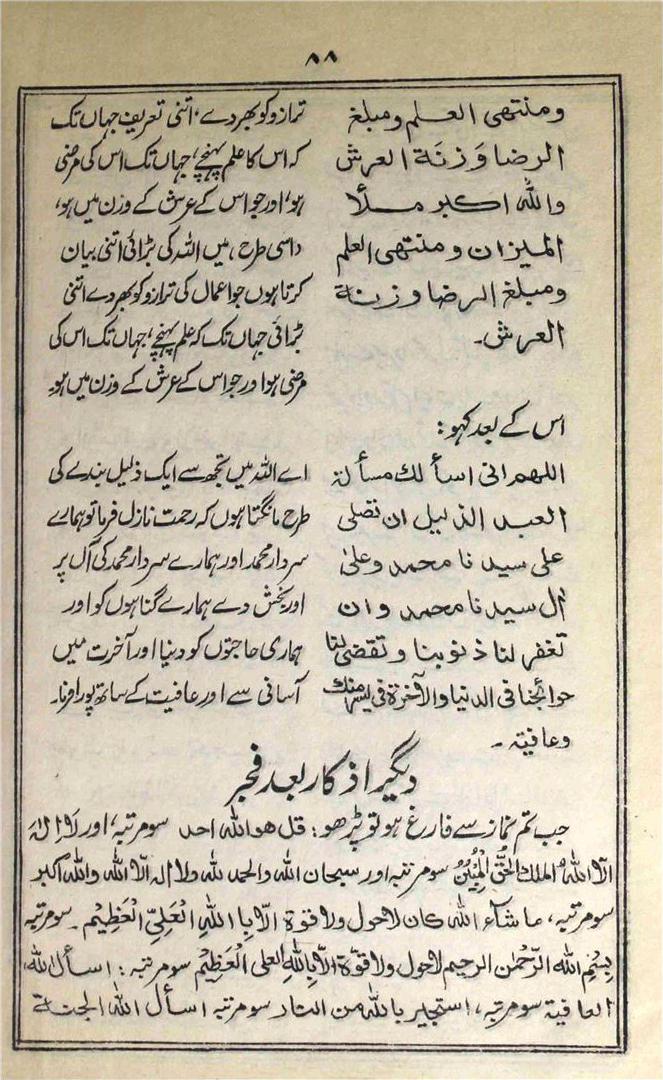 ۸۸
ومنتهى العلم ومبلغ
الرضا وَزِنَة العرش
والله اكبر ملأ
الميزان ومنتهى العلم
ومبلغ الرضا وزنة
العرش۔
ترازو کو بھر دے، اتنی تعریف جہاں تک
کہ اس کا علم پہنچے، جہاں تک اس کی مرضی
ہو، اور جو اس کے عرش کے وزن میں ہو،
داسی طرح، میں اللہ کی بڑائی اتنی بیان
کرتا ہوں جو اعمال کی ترازو کو بھر دے اتنی
بڑائی جہاں تک کہ علم پہنچے، جہاں تک اس کی
مرضی ہو اور جو اس کے عرش کے وزن میں ہو۔
اس کے بعد کہو:
اللهم انى اسألك مسألة
العبد الذليل ان تصلى
على سيدنا محمد وعلىٰ
آل سيدنا محمد وان
تغفر لنا ذنوبنا وتقضى لنا
حوائجنا فى الدنيا والآخرة فى يسر منك
وعافية۔
اے اللہ میں تجھ سے ایک ذلیل بندے کی
طرح مانگتا ہوں کہ رحمت نازل فرما تو ہمارے
سردار محمد اور ہمارے سردار محمد کی آل پر
اور بخش دے ہمارے گناہوں کو اور
ہماری حاجتوں کو دنیا اور آخرت میں
آسانی سے اور عافیت کے ساتھ پورا فرنا۔
دیگر اذکار بعد فجر
جب تم نماز سے فارغ ہو تو پڑھو: قل هو الله احد سو مرتبہ، اور لَا إِلٰهَ
اِلَّا اللهُ الملك الحَقُّ الْمُبِيْنُ سو مرتبہ اور سبحان الله والحمد لله ولا اله الّا الله والله اكبر
سو مرتبہ، ما شآء الله كان لا حول ولا قوة اِلّا بِا اللهِ الْعَلِيِّ الْعَظِيْم۔ سو مرتبہ
بِسْمِ الله الرَّحْمٰن الرحيم لا حول ولا قوَّة اِلَّا بِاللهِ العلى الْعَظِيْم سو مرتبہ: اسأل الله
العافية سو مرتبہ، استجير بالله من النار سو مرتبہ اسأل الله الجنة